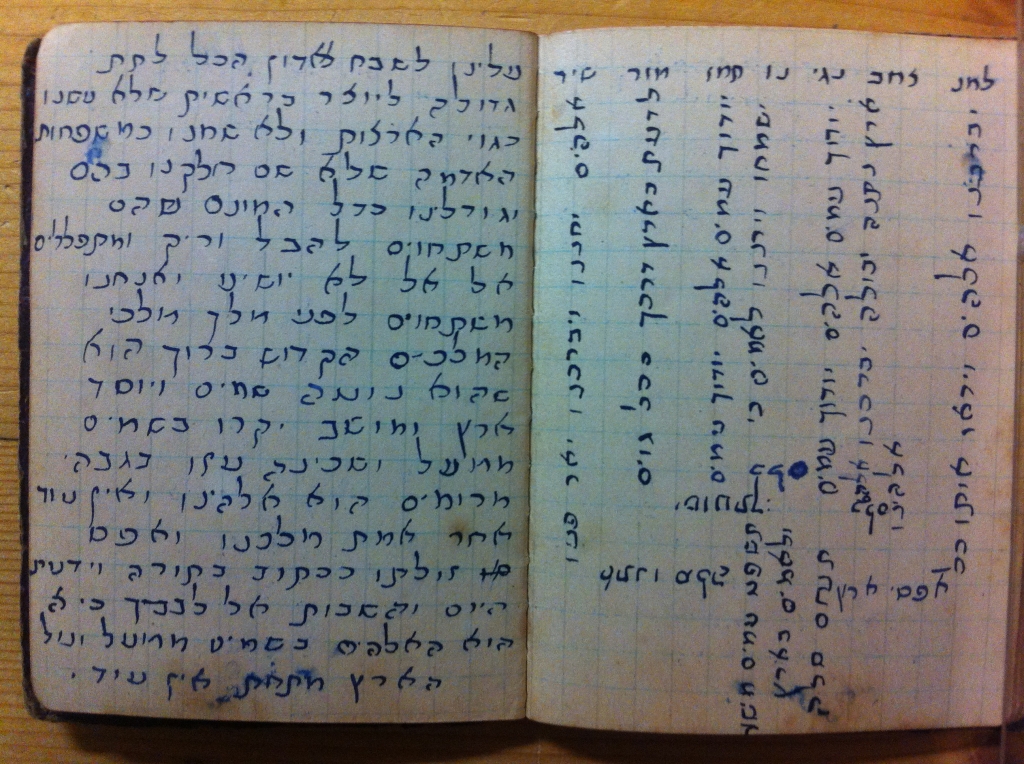 למנ צחב נגי נו תמז מור שיר
יברכנו אלהים וייראו איתו כל
אפסי ארץ
ארץ נתנה יבולה יברכנו אלהים
אלהינו
יודוך עמים אלהים יודוך עמים
ישמחו וירננו לאמים כי
תשפט עמים
ולאמים בארץ
תנחם סלה
יודוך עמים אלהים יודוך עמים
לדעת בארץ דרכך בכל גוים
אלהים יחננו ויברכנו יאר פניו
עלינו לשבח לאדון הכל לתת
גדולה ליוצר בראשית שלא עשנו
כגויי הארצות ולא שמנו כמשפחות
האדמה שלא שם חלקנו כהם
וגורלינו ככל המונם שהם
משתחוים להבל וריק ומתפללים
אל אל לא יושיע ואנחנו
משתחוים לפני מלך מלכי
המלכים הקדוש ברוך הוא
שהוא נוטה שמים ויוסד
ארץ ומושב יקרו בשמים
ממעל ושכינת עזו בגבהי
מרומים הוא אלהינו ואין עוד
אחר אמת מלכנו ואפס
זולתו ככתוב בתורה וידעת
היום והשבות אל לבביך כי א
הוא האלהים בשמים ממעל ועל
הארץ מתחת אין עוד.